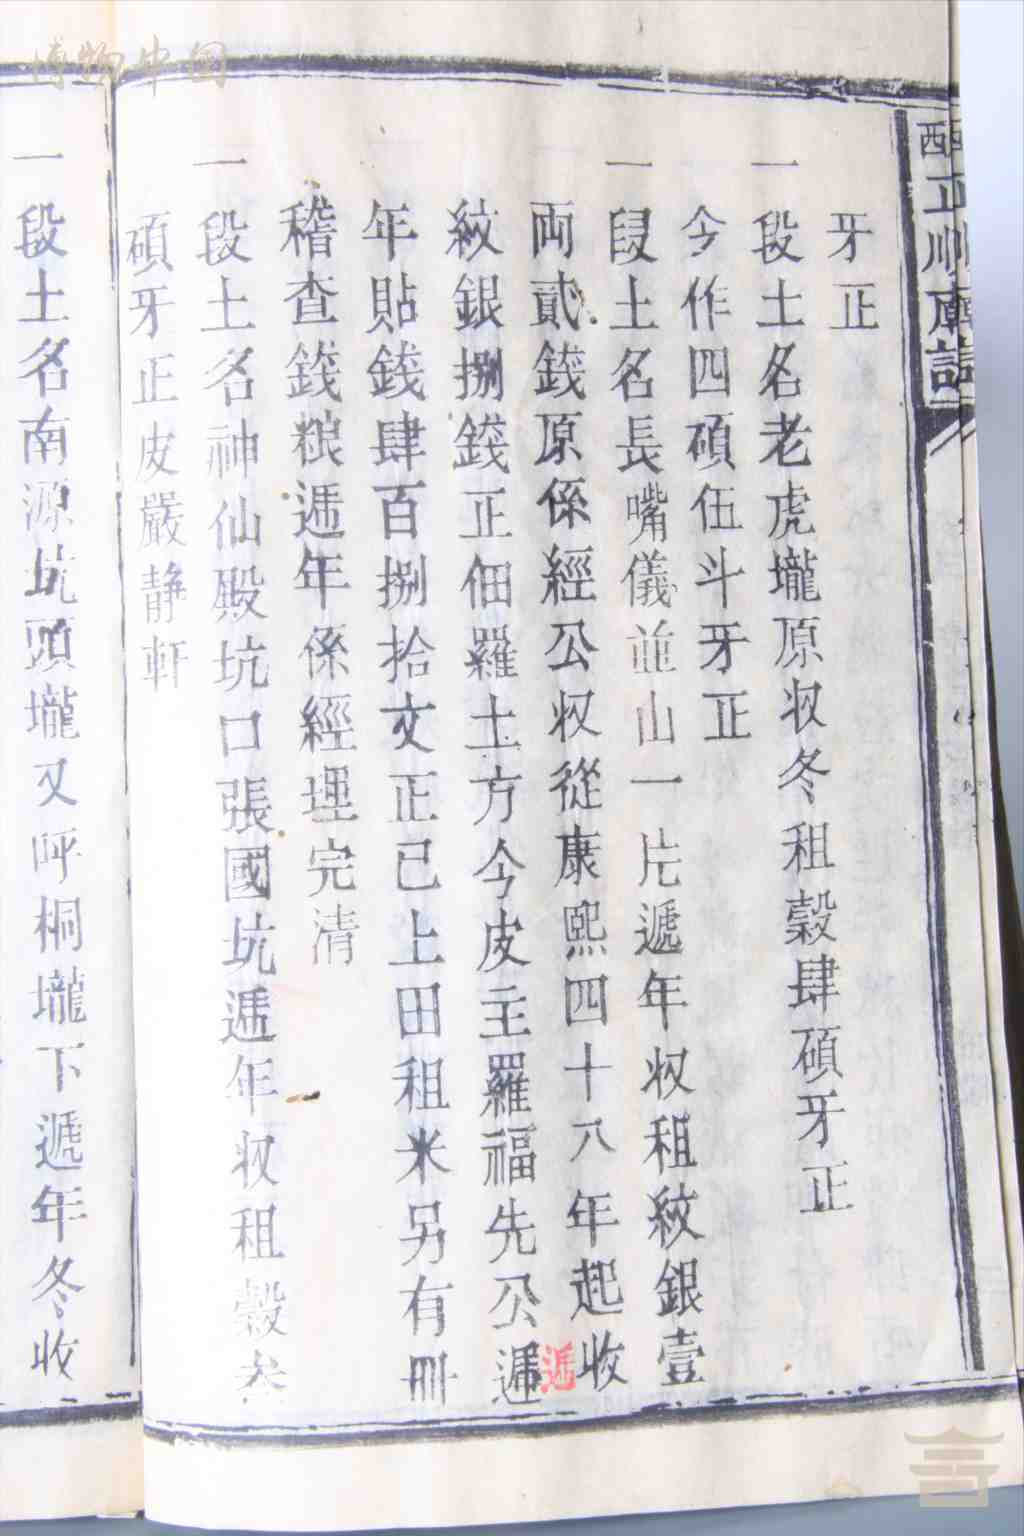 西正順廟誌
牙正
一段土名老虎壠原収冬租榖肆碩牙正
今作四碩伍斗牙正
一段土名長嘴儀並山一片遞年収租紋銀壹
両貳錢原係經公収從康熙四十八年起收
遞
紋銀捌錢正佃羅土方今皮主羅福先公遞
年貼錢肆百捌拾文正已上田租米另有冊
稽查錢粮遞年係經理完清
一段土名神仙殿坑口張國坑遞年収租榖叁
碩牙正皮嚴静軒
一段土名南源坑頭壠又呼桐壠下遞年冬收
博物中国